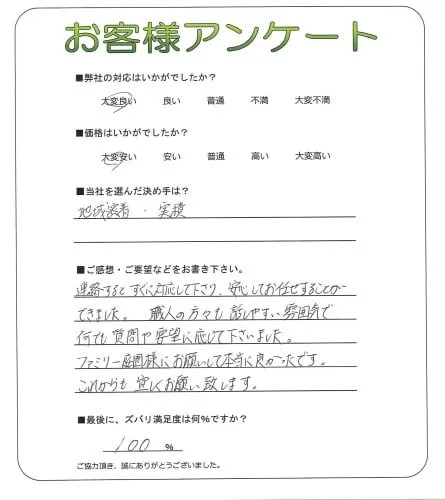 お客様アンケート
■弊社の対応はいかがでしたか?
大変良い 良い 普通 不満 大変不満
■価格はいかがでしたか?
大変安い 安い 普通 高い 大変高い
■当社を選んだ決め手は?
地域密着 ・ 実績
■ご感想・ご要望などをお書き下さい。
連絡するとすぐに対応して下さり、安心してお任せすることが
できました。 職人の方々も話しやすい雰囲気で
何でも質問や要望に応じて下さいました。
ファミリー庭園様にお願いして本当に良かったです。
これからも宜しくお願い致します。
■最後に、ズバリ満足度は何%ですか?
100 %
ご協力頂き、誠にありがとうございました。